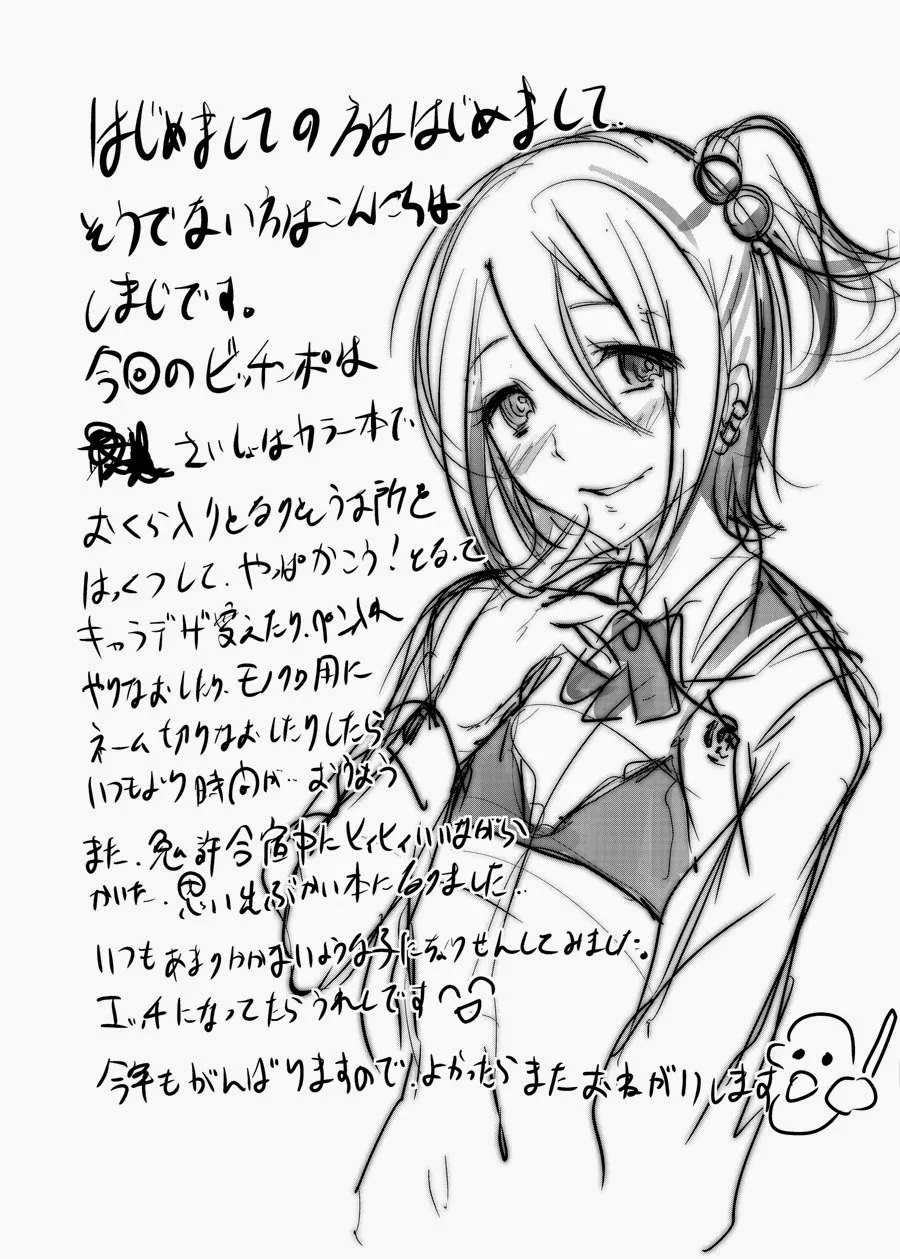 はじめましての方ははじめまして、
そうでない方はこんにちは
しまじです。
今回のビッチンポは
さいしょはカラー本で
おくら入りとなりそうな所を
はっくつして、やっぱかこう！となって
キャラデザ変えたり、ペン入れ
やりなおしたり、モノクロ用に
ネーム切りなおしたりしたら
いつもより時間が‥おりゅう
また、免許合宿中にヒィヒィいいながら
かいた、思い出ぶかい本になりました‥
いつもあまりかかないような子にちょうせんしてみました。
エッチになってたらうれしいです
今年もがんばりますので、よかったらまたおねがいします